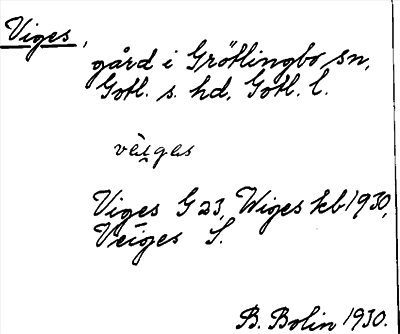 Viges,
gård i Grötlingbo sn,
Gotl. s. hd, Gotl. l.
vèi̯gɑs
Viges G 23, Wiges kb 1930,
Veiges S.
B. Bolin 1930.